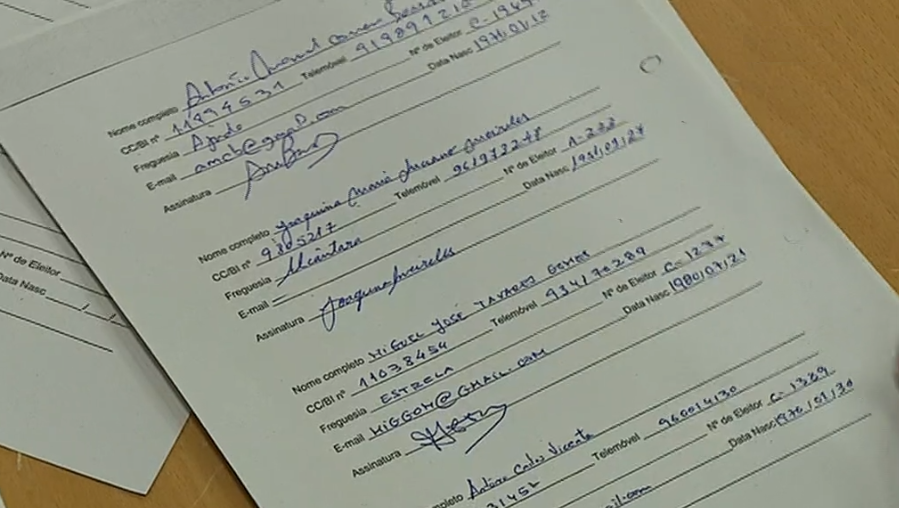 Nome completo António Manuel
CC/BI nº 11994531 Telemóvel 919891210 Nº de Eleitor C-1949
Freguesia Ajuda Data Nasc 1976/01/12
E-mail amcb@gmail.com
Assinatura
Nome completo Joaquina Maria Meireles
CC/BI nº 9805217 Telemóvel 961973278 Nº de Eleitor A-233
Freguesia Alcântara Data Nasc
E-mail
Assinatura Joaquina Meireles
Nome completo MIGUEL JOSÉ TAVARES GOMES
CC/BI nº 11038454 Telemóvel 934170289 Nº de Eleitor C-1277
Freguesia ESTRELA Data Nasc 1980/07/21
E-mail MIGGOM@GMAIL.COM
Assinatura
António Carlos Vicente
Telemóvel 960014130 Nº de Eleitor C-1389
Data Nasc 1976/01/30
Nº de Eleitor
Data Nasc